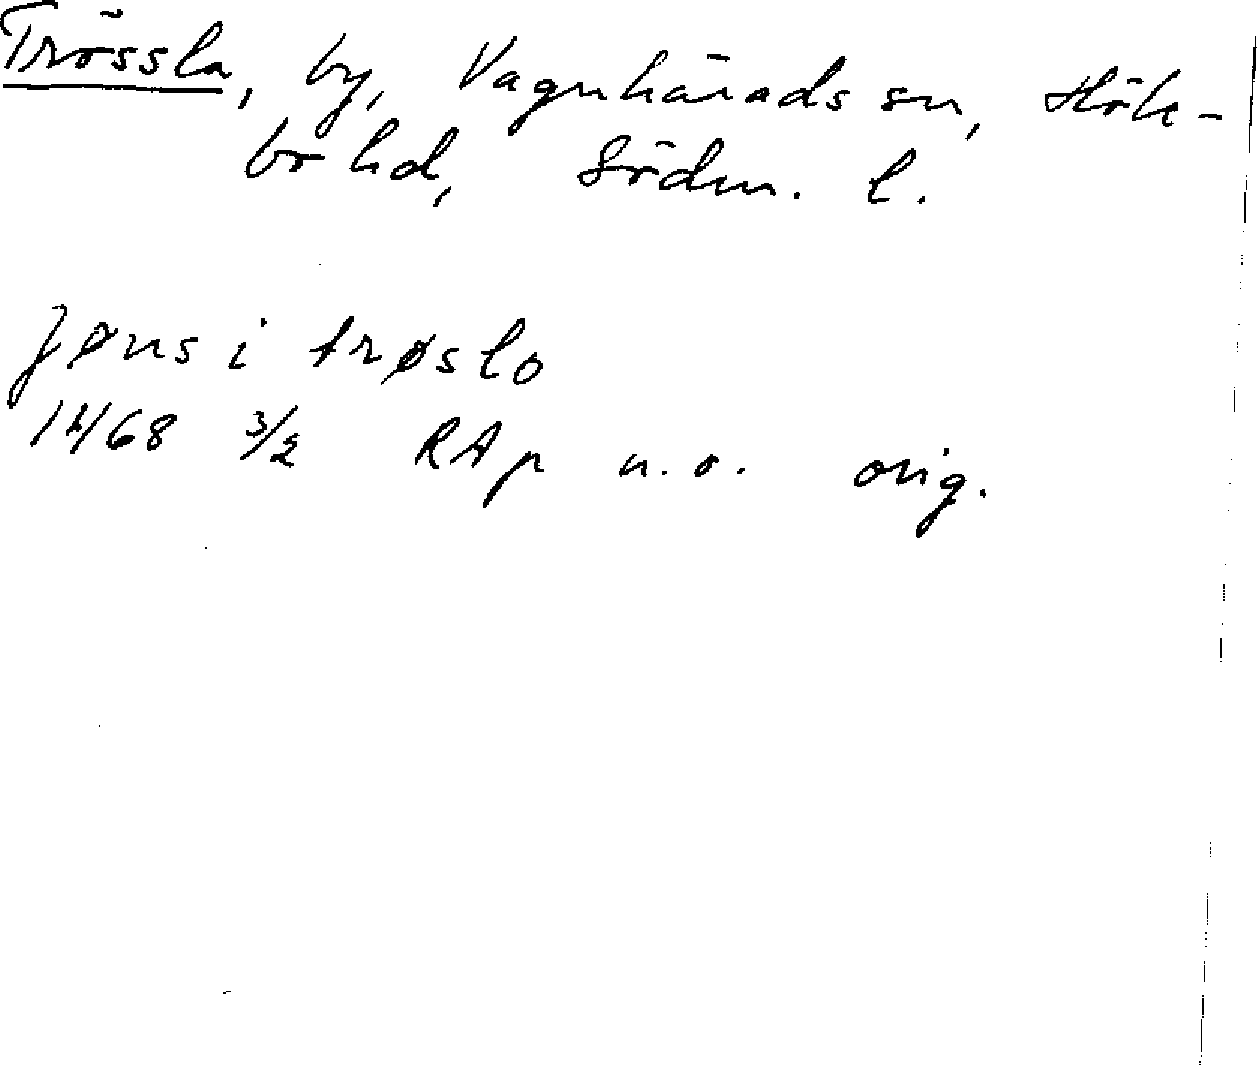 Trössla, by, Vagnhärads sn, Höle-
bo hd, Södm. l.
Jøns i trøslo
1468 3/2 RAp n.o. orig.